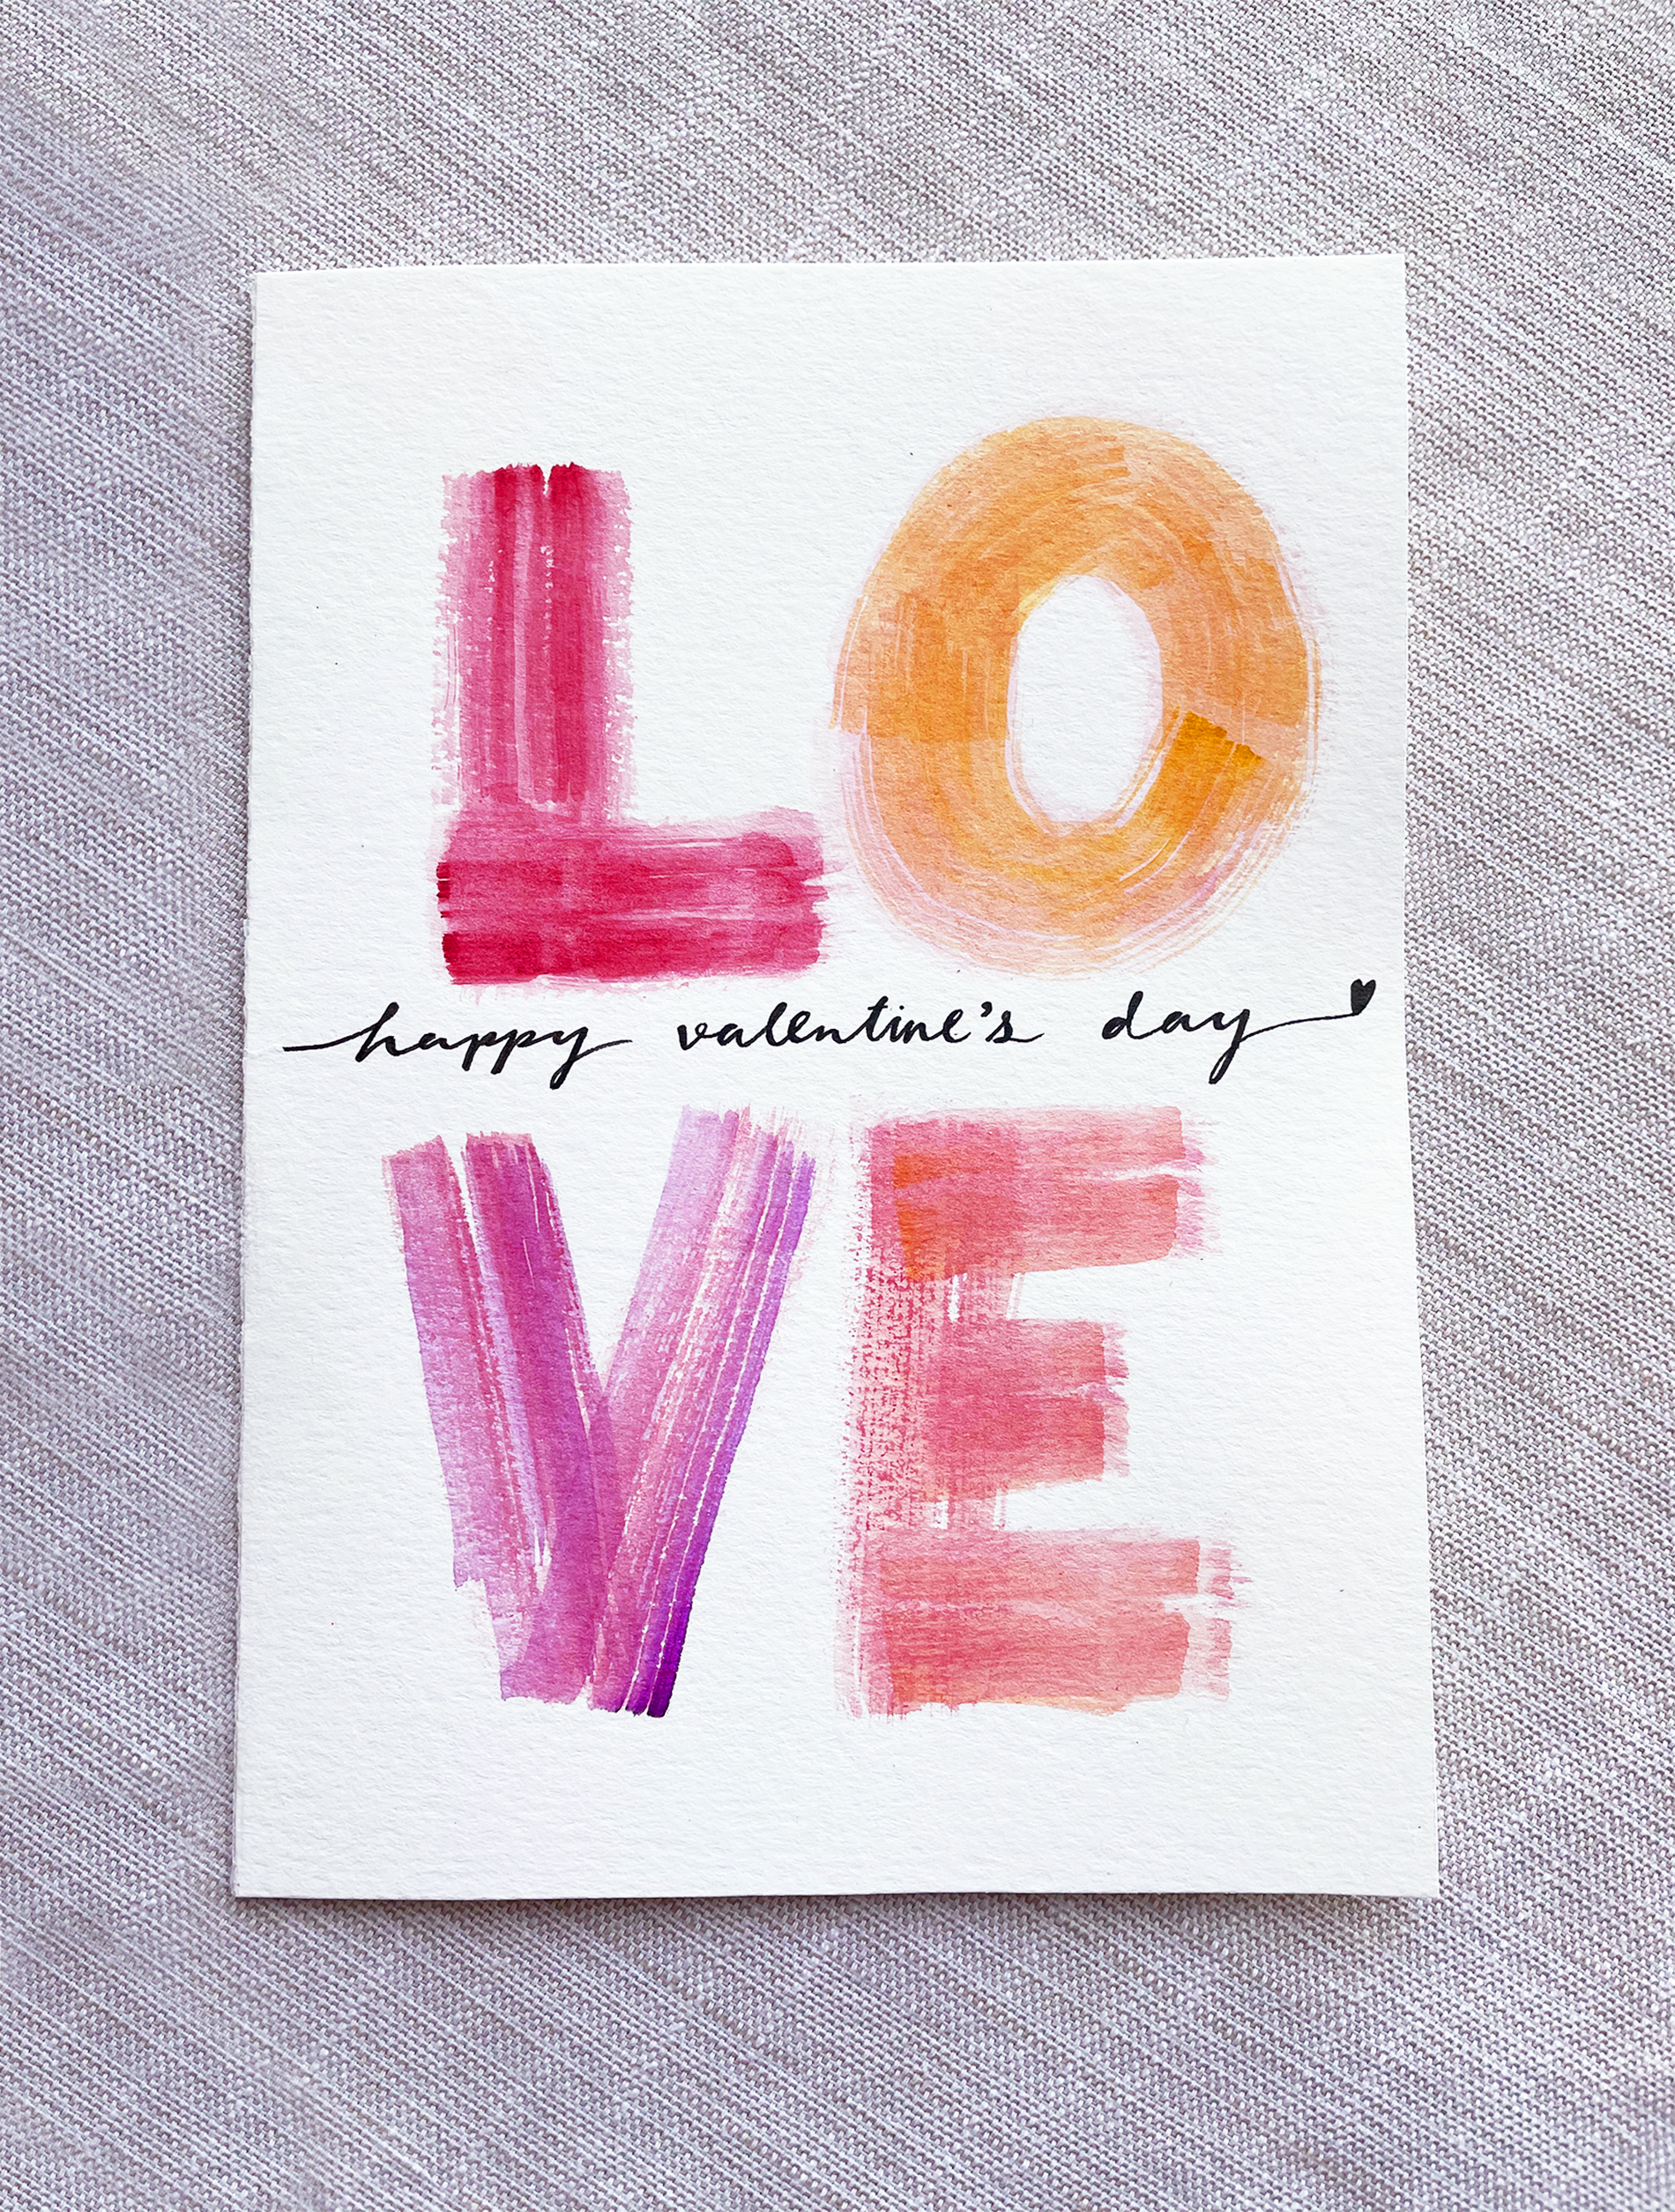 LO
happy valentine's day
VE